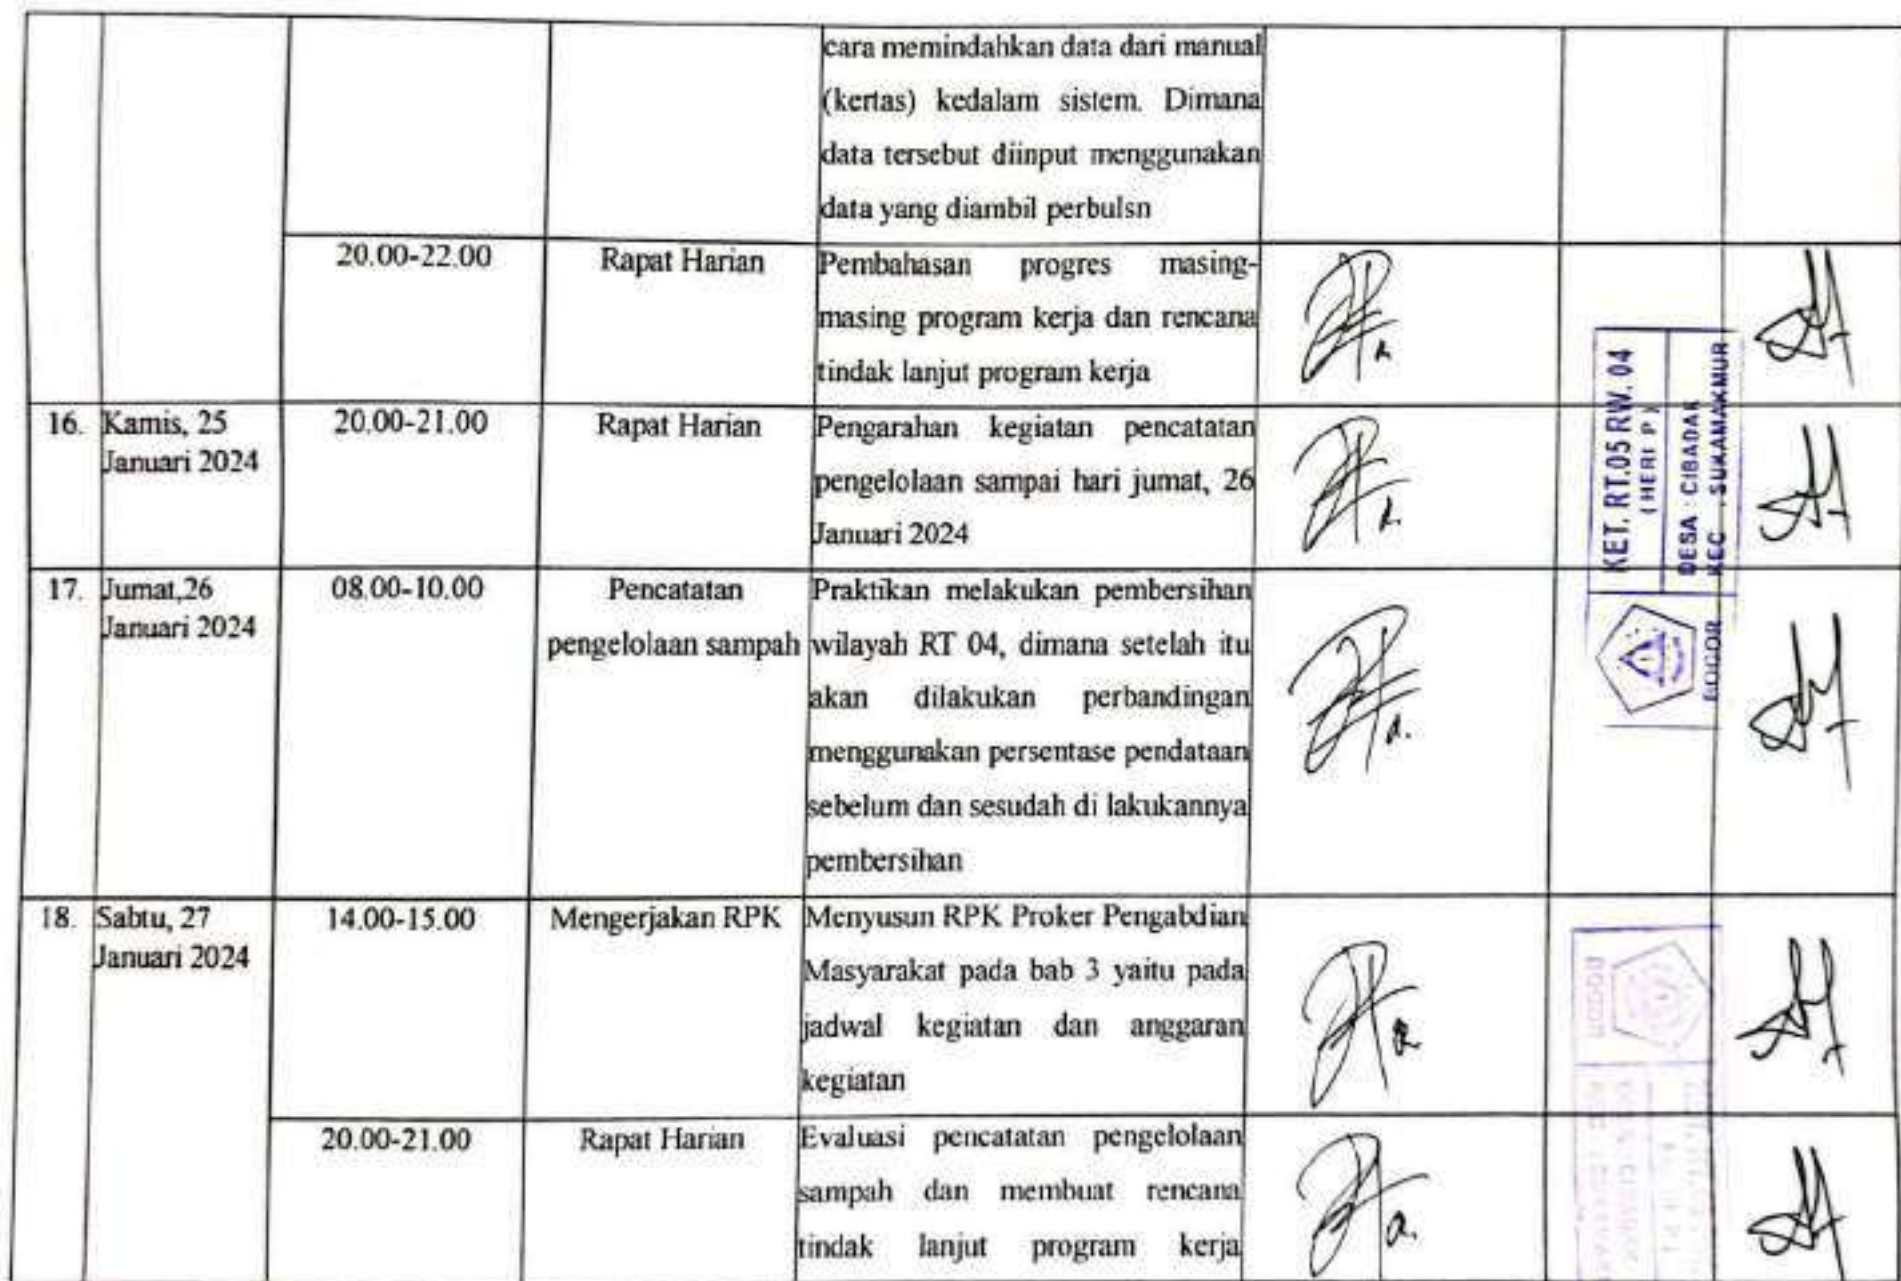 cara memindahkan data dari manual
(kertas) kedalam sistem. Dimana
data tersebut diinput menggunakan
data yang diambil perbulsn
20.00-22.00
Rapat Harian
Pembahasan progres masing-
masing program kerja dan rencana
tindak lanjut program kerja
16.
Kamis, 25
Januari 2024
20.00-21.00
Rapat Harian
Pengarahan kegiatan pencatatan
pengelolaan sampai hari jumat, 26
Januari 2024
KET. RT.05 RW. 04
( HERI P )
DESA : CIBADAK
KEC . SUKAMAKMUR
BOGOR
17.
Jumat,26
Januari 2024
08.00-10.00
Pencatatan
pengelolaan sampah
Praktikan melakukan pembersihan
wilayah RT 04, dimana setelah itu
akan dilakukan perbandingan
menggunakan persentase pendataan
sebelum dan sesudah di lakukannya
pembersihan
18.
Sabtu, 27
Januari 2024
14.00-15.00
Mengerjakan RPK
Menyusun RPK Proker Pengabdian
Masyarakat pada bab 3 yaitu pada
jadwal kegiatan dan anggaran
kegiatan
20.00-21.00
Rapat Harian
Evaluasi pencatatan pengelolaan
sampah dan membuat rencana
tindak lanjut program kerja